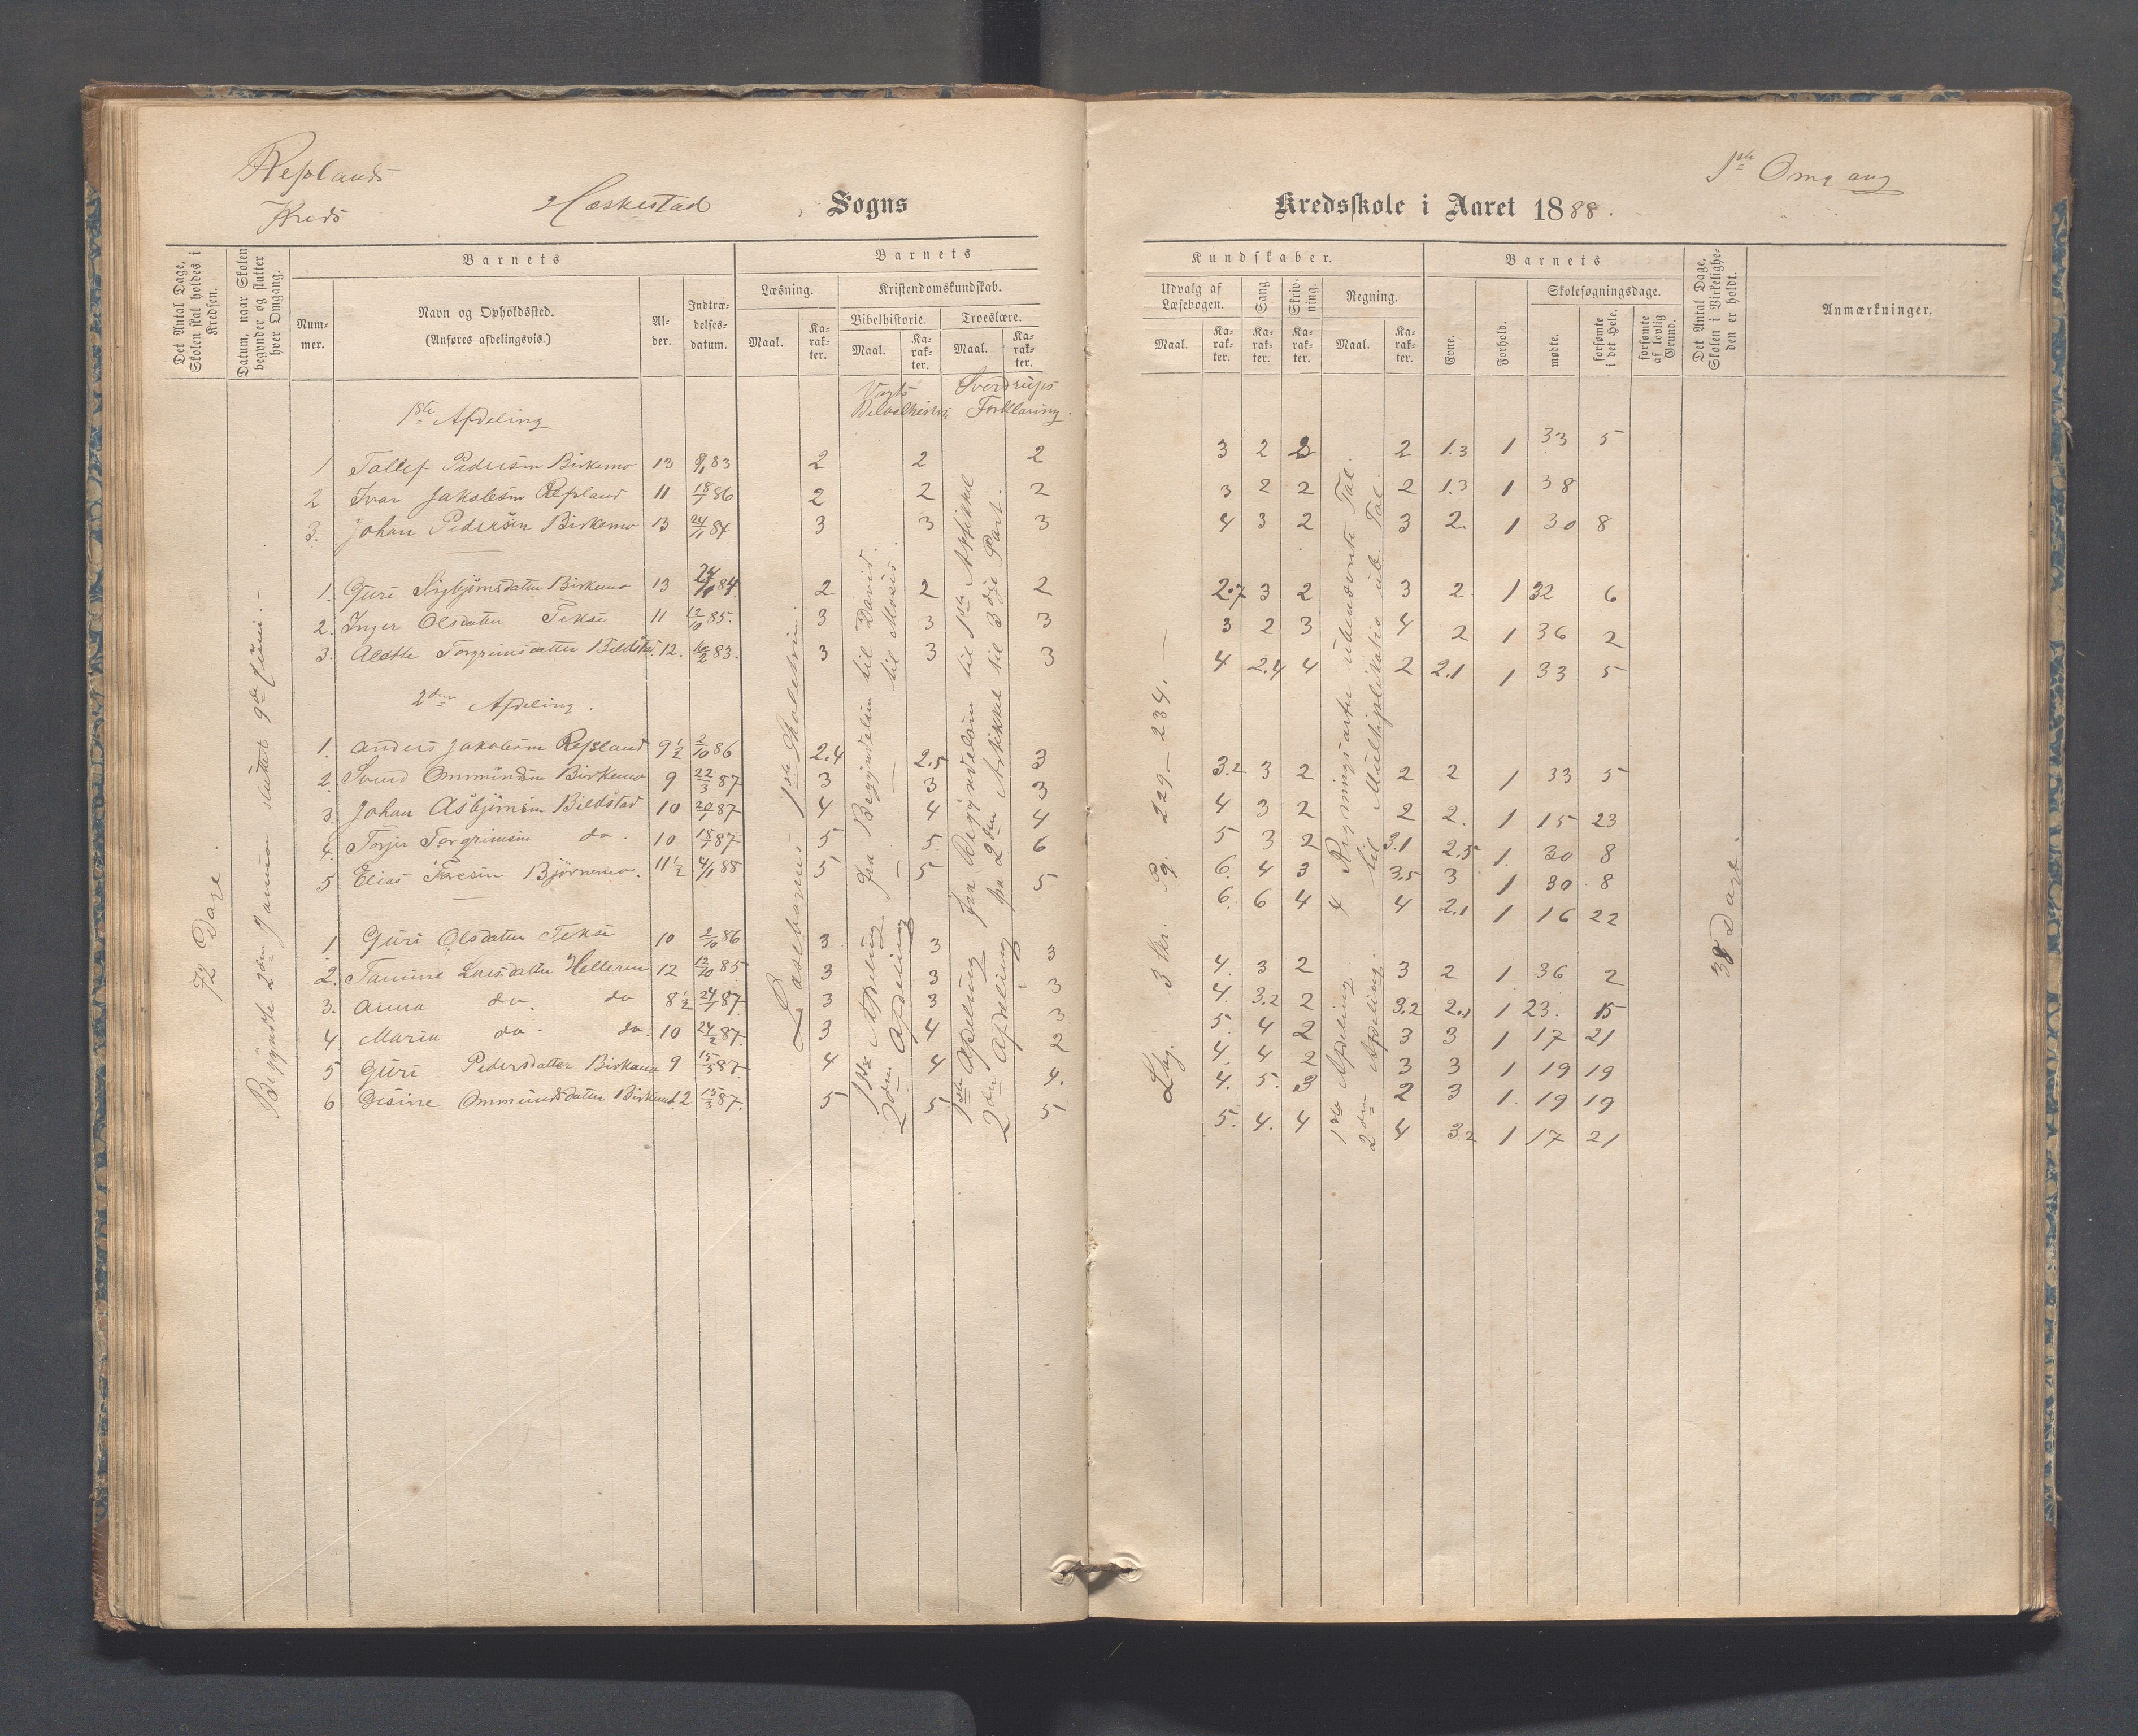 Refslands
Kreds
Heskestad Sogns
Kredsskole i Aaret 1888.
1ste Omgang
Det Antal Dage, Skolen skal holdes i Kredsen.
Datum, naar Skolen begynder og slutter hver Omgang.
Barnets
Nummer.
Navn og Opholdssted.
(Anføres afdelingsvis.)
Alder.
Indtrædelsesdatum.
Barnets
Læsning.
Kristendomskundskab.
Bibelhistorie.
Troeslære.
Maal.
Karakter.
Maal.
Karakter.
Maal.
Karakter.
Kundskaber.
Udvalg af Læsebogen.
Sang
Skrivning.
Regning.
Maal.
Karakter.
Karakter.
Karakter.
Maal.
Karakter.
Barnets
Evne.
Forhold.
Skolesøgningsdage.
mødte.
forsømte i det Hele.
forsømte af lovlig Grund.
Det Antal Dage, Skolen i Virkeligheden er holdt.
Anmærkninger.
Vogts Bibelhistorie
Sverdrups Forklaring.
72 Dage.
Begyndte 2den Januar sluttet 9de Juni.
Læsebogens 1ste Skoletrin.
1ste Afdeling fra Begyndelsen til David.
2den Afdeling til Moses.
1ste Afdeling fra Begyndelsen til 1ste Artikkel
2den Afdeling fra 2den Artikkel til 3dje Part.
Lsg. 3 Kr. Pg. 229 – 234.
1ste Afdeling 4 Regningsarter ubenævnte Tal.
2den Afdeling til Multiplikation ub. Tal.
38 Dage.
1ste Afdeling
1 Tallef Pedersen Birkemo 13 8/1 83 2 2 2 3 2 2 2 1.3 1 33 5
2 Ivar Jakobsen Refsland 11 18/1 86 2 2 2 3 2 2 2 1.3 1 38
3. Johan Pedersen Birkemo 13 24/1 84 3 3 3 4 3 2 3 2. 1 30 8
1. Guri Sigbjørnsdatter Birkemo 13 24/1 84. 2 2 2 2.7 3 2 3 2. 1 32 6
2. Inger Olsdatter Tekse 11 12/10 85. 3 3 3 3 2 3 4 2 1 36 2
3. Alette Torgrimsdatter Bildstad 12. 16/2 83. 3 3 3 4 2.4 4 2 2.1 1 33 5
2den Afdeling.
1. Anders Jakobsen Refsland 9½ 2/10 86 2.4 2.5 3 3.2 3 2 2 2 1 33 5
2. Svend Ommundsen Birkemo 9 22/3 87 3 3 3 4 3 2 2 2. 1 15 23
3. Johan Asbjørnsen Bildstad 10 20/1 87 4 4 4 5 3 2 3.1 2.5 1. 30 8
4. Torger Torgrimsen do. 10 18/1 87 5 5. 6 6. 4 3 3.5 3 1 30 8
5 Elias Toresen Bjørnemo. 11½ 4/1 88 5 5 5 6. 6 4 4 2.1 1 16 22
1 Guri Olsdatter Tekse 10 2/10 86 3 3 3 4. 3 2 3 2 1. 36 2
2. Tamine Larsdatter Helleren 12 12/10 85 3 3 3 4. 3.2 2 3.2 2.1 1 23. 15
3. Anna do. do 8½ 24/1 87. 3 3 3 5. 4 2 3 3 1 17 21
4 Marie do. do. 10 24/2 87. 3 4 2 4. 4 2 3 3 1 19 19
5 Guri Pedersdatter Birkemo 9 15/3 87. 4 4 4. 4. 5. 3 2 3 1. 19 19
6 Gesine Ommundsdatter Birkemo 12 15/3 87. 5 5 5 5. 4. 4 4 3.2 1 17 21